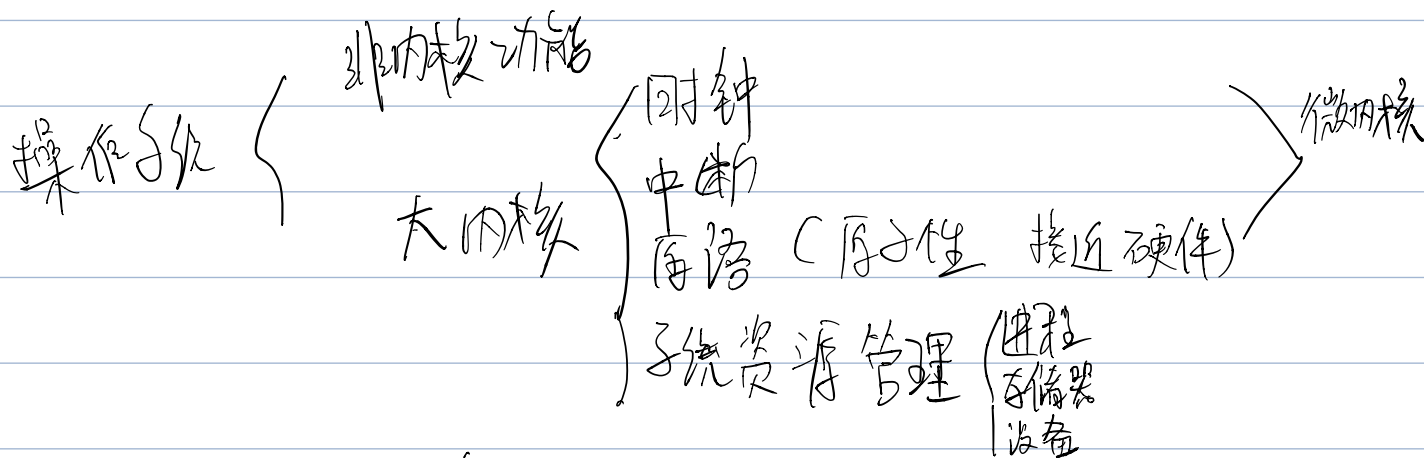 非内核功能
操作系统
大内核
时钟
中断
原语（原子性 接近硬件）
系统资源管理
进程
存储器
设备
微内核